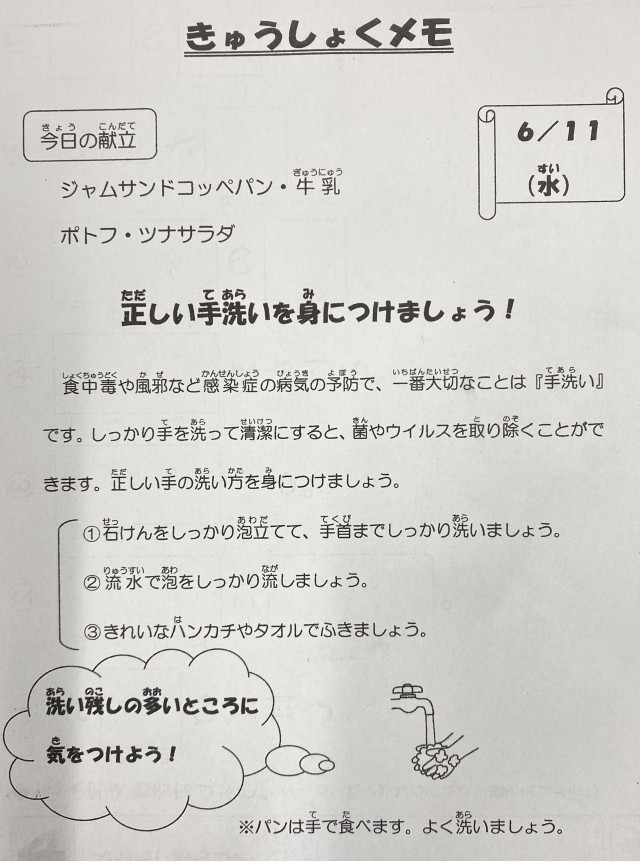 きゅうしょくメモ
今日の献立
6／11
（水）
ジャムサンドコッペパン・牛乳
ポトフ・ツナサラダ
正しい手洗いを身につけましょう！
食中毒や風邪など感染症の病気の予防で、一番大切なことは『手洗い』
です。しっかり手を洗って清潔にすると、菌やウイルスを取り除くことがで
きます。正しい手の洗い方を身につけましょう。
①石けんをしっかり泡立てて、手首までしっかり洗いましょう。
②流水で泡をしっかり流しましょう。
③きれいなハンカチやタオルでふきましょう。
洗い残しの多いところに
気をつけよう！
※パンは手で食べます。よく洗いましょう。